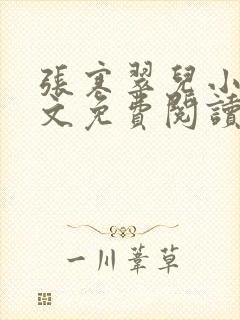 張寒翠兒小
文免費閱讀
一川葦草